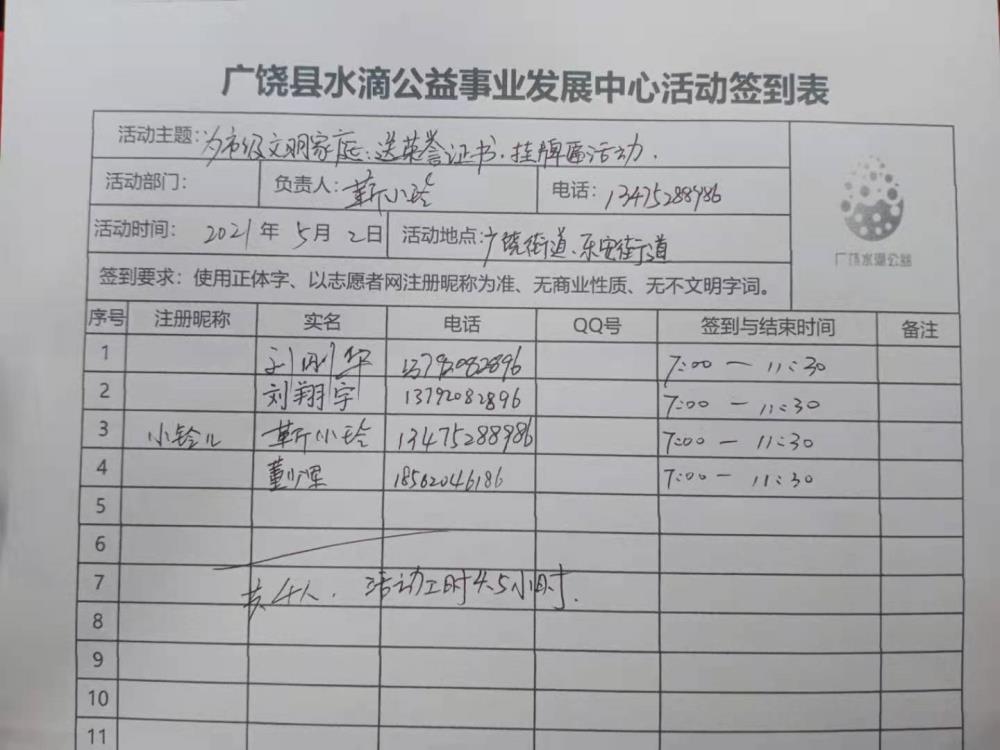 广饶县水滴公益事业发展中心活动签到表
活动主题：为市级文明家庭送荣誉证书、挂牌匾活动.
活动部门： 负责人：靳小玲 电话：13475288986
活动时间： 2021年5月2日 活动地点：广饶街道、乐安街道
广饶水滴公益
签到要求：使用正体字、以志愿者网注册昵称为准、无商业性质、无不文明字词。
序号 注册昵称 实名 电话 QQ号 签到与结束时间 备注
1 13792082896 7:00 — 11:30
2 刘翔宇 13792082896 7:00 — 11:30
3 小铃儿 靳小玲 13475288986 7:00 — 11:30
4 18562046186 7:00 — 11:30
5
6
7 共4人. 活动工时4.5小时.
8
9
10
11